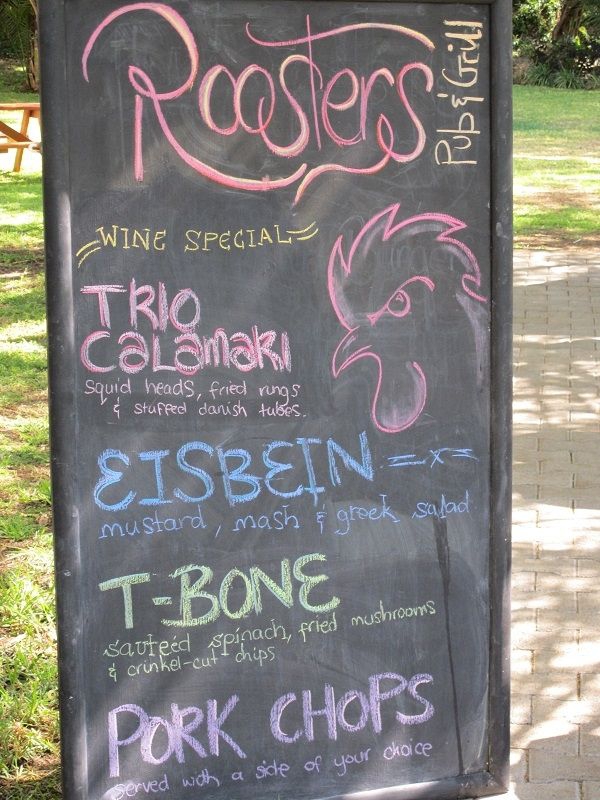 Roosters
Pub & Grill
WINE SPECIAL
TRIO
CALAMARI
squid heads, fried rings
& stuffed danish tubes.
EISBEIN =x=
mustard, mash & greek salad
T-BONE
sauteéd spinach, fried mushrooms
& crinkel-cut chips
PORK CHOPS
served with a side of your choice